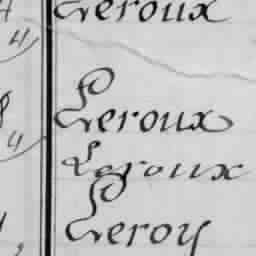 Leroux
4
Leroux
4
Laroux
Leroy